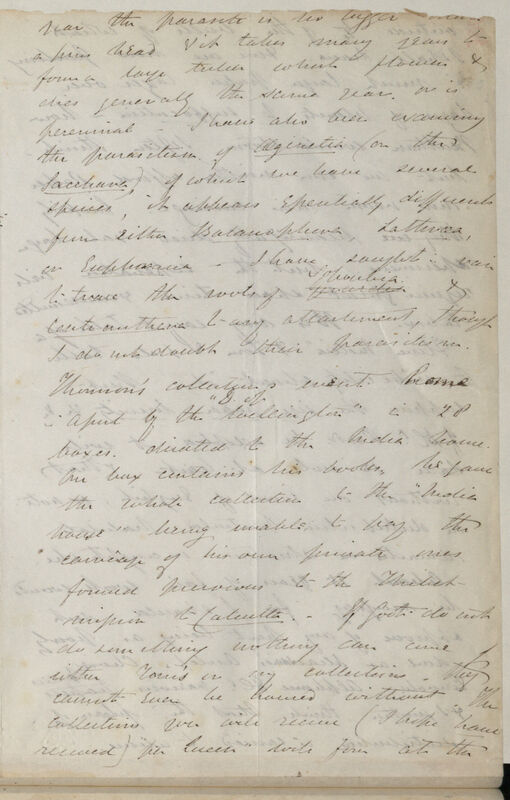 year the parasite is no bigger than
a pins head & it takes many years to
form a large tuber which flowers &
dies generally the same year. or is
perennial — I have also been examining
the parasitism of Æginetia (on the
Saccharum) of which we have several
species, it appears essentially different
from either Balanophora Lathræa,
or Euphrasia — I have sought in vain
to trace the roots of Sopubia &
Centranthera to any attachment, though
I do not doubt their parasitism.
Thomson's collections went home
in April by the "D. of Wellington" in 28
boxes directed to the India house.
One box contains his books, he gave
the whole collection to the "India
house" being unable to pay the
carriage of his own private ones
formed previous to the Thibet
mission to Calcutta. — If Govt. do not
do something nothing can come
either Tom's or my collections they
cannot even be housed without. The
collections you will receive (I hope have
received) per Queen were from at the